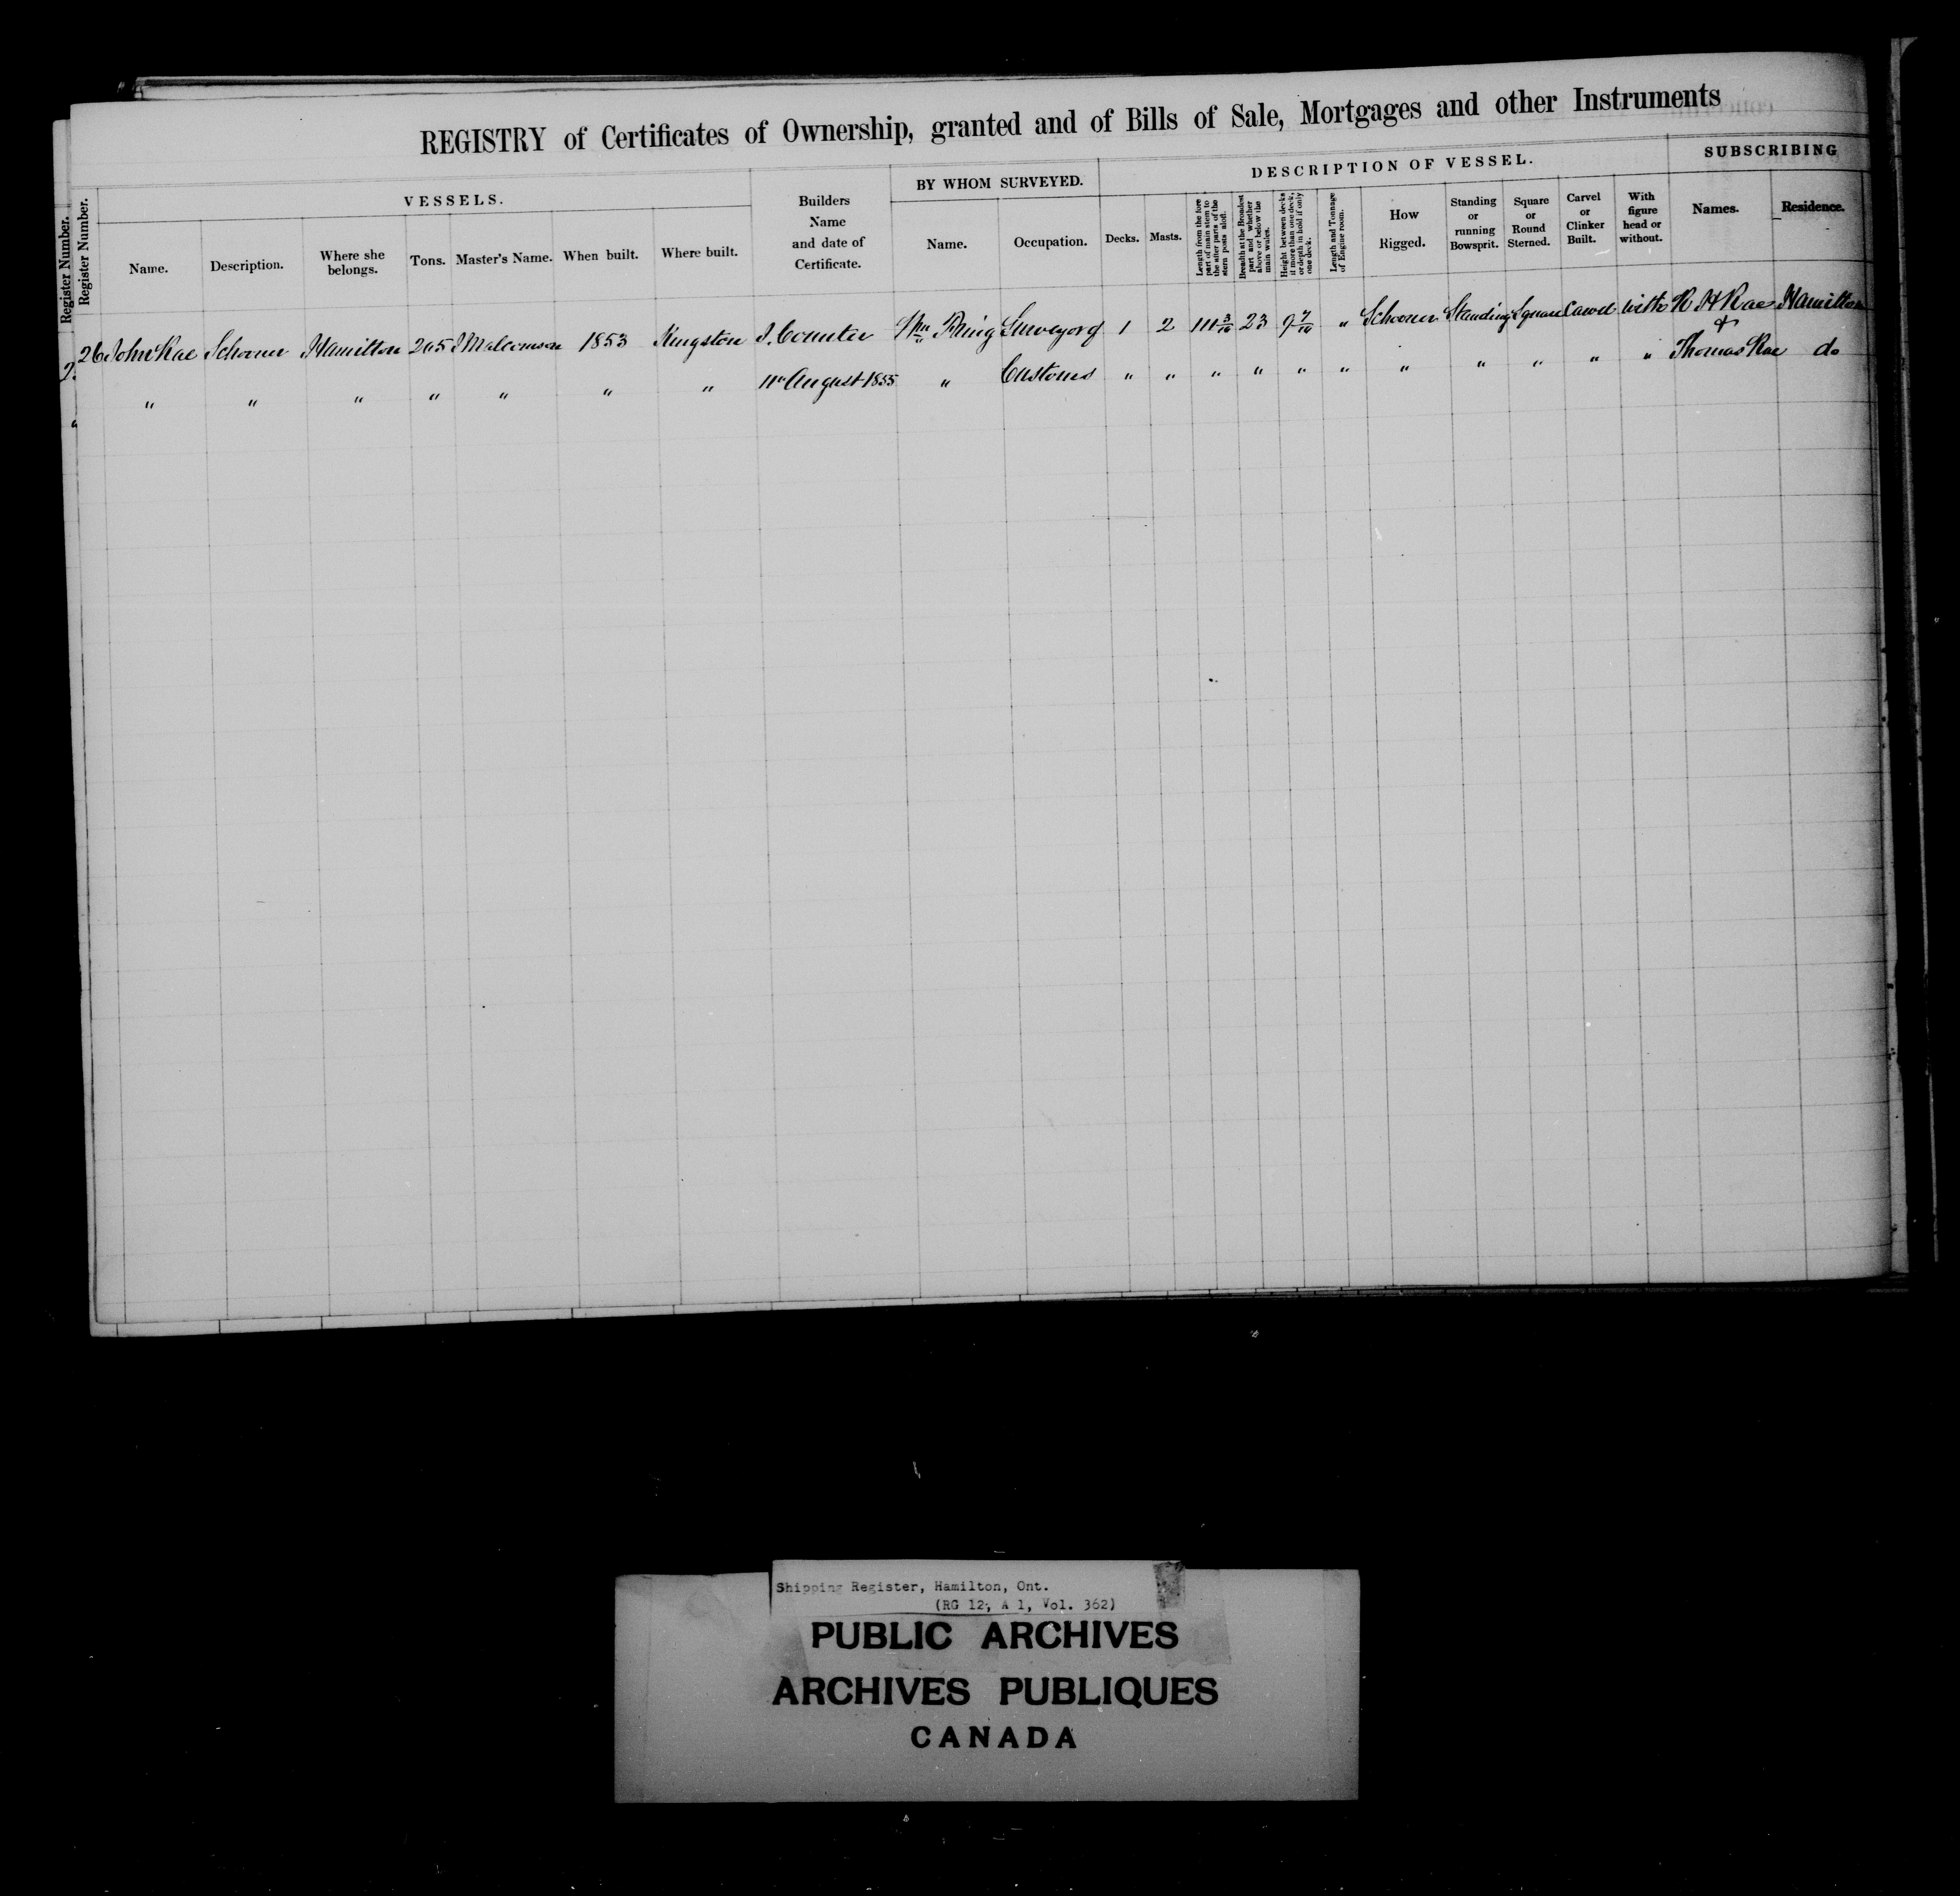 REGISTRY of Certificates of Ownership, granted and of Bills of Sale, Mortgages and other Instruments
Register Number.
Register Number.
VESSELS.
Builders Name and date of Certificate.
BY WHOM SURVEYED.
DESCRIPTION OF VESSEL.
SUBSCRIBING
Name. Description. Where she belongs. Tons. Master's Name. When built. Where built. Name. Occupation. Decks. Masts. Length from the fore part of main stem to the after parts of the stern posts aloft. Breadth at the Broadest part and whether above or below the main wales. Height between decks if more than one deck, or depth in hold if only one deck. Length and Tonnage of Engine room. How Rigged. Standing or running Bowsprit. Square or Round Sterned. Carvel or Clinker Built. With figure head or without. Names. Residence.
26 John Rae Schooner Hamilton 205 J Malcomson 1853 Kingston J. Counter Wm Surveyor of 1 2 111 3/10 23 9 7/10 " Schooner Standing Square Carvel with R H Rae Hamilton
&
" " " " " " " 11th August 1855 " Customs " " " " " " " " " " " Thomas Rae do
Shipping Register, Hamilton, Ont.
(RG 12, A 1, Vol. 362)
PUBLIC ARCHIVES
ARCHIVES PUBLIQUES
CANADA